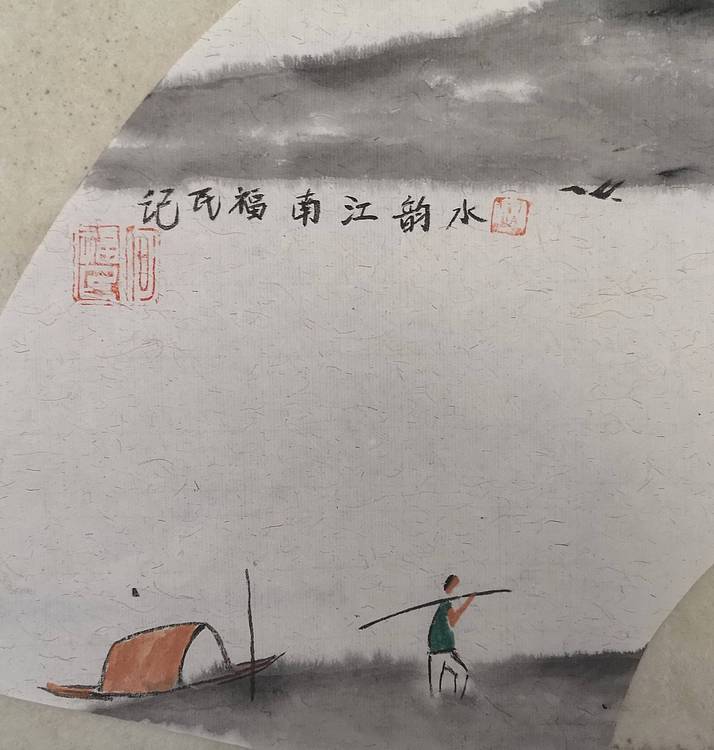 水韵江南福民记